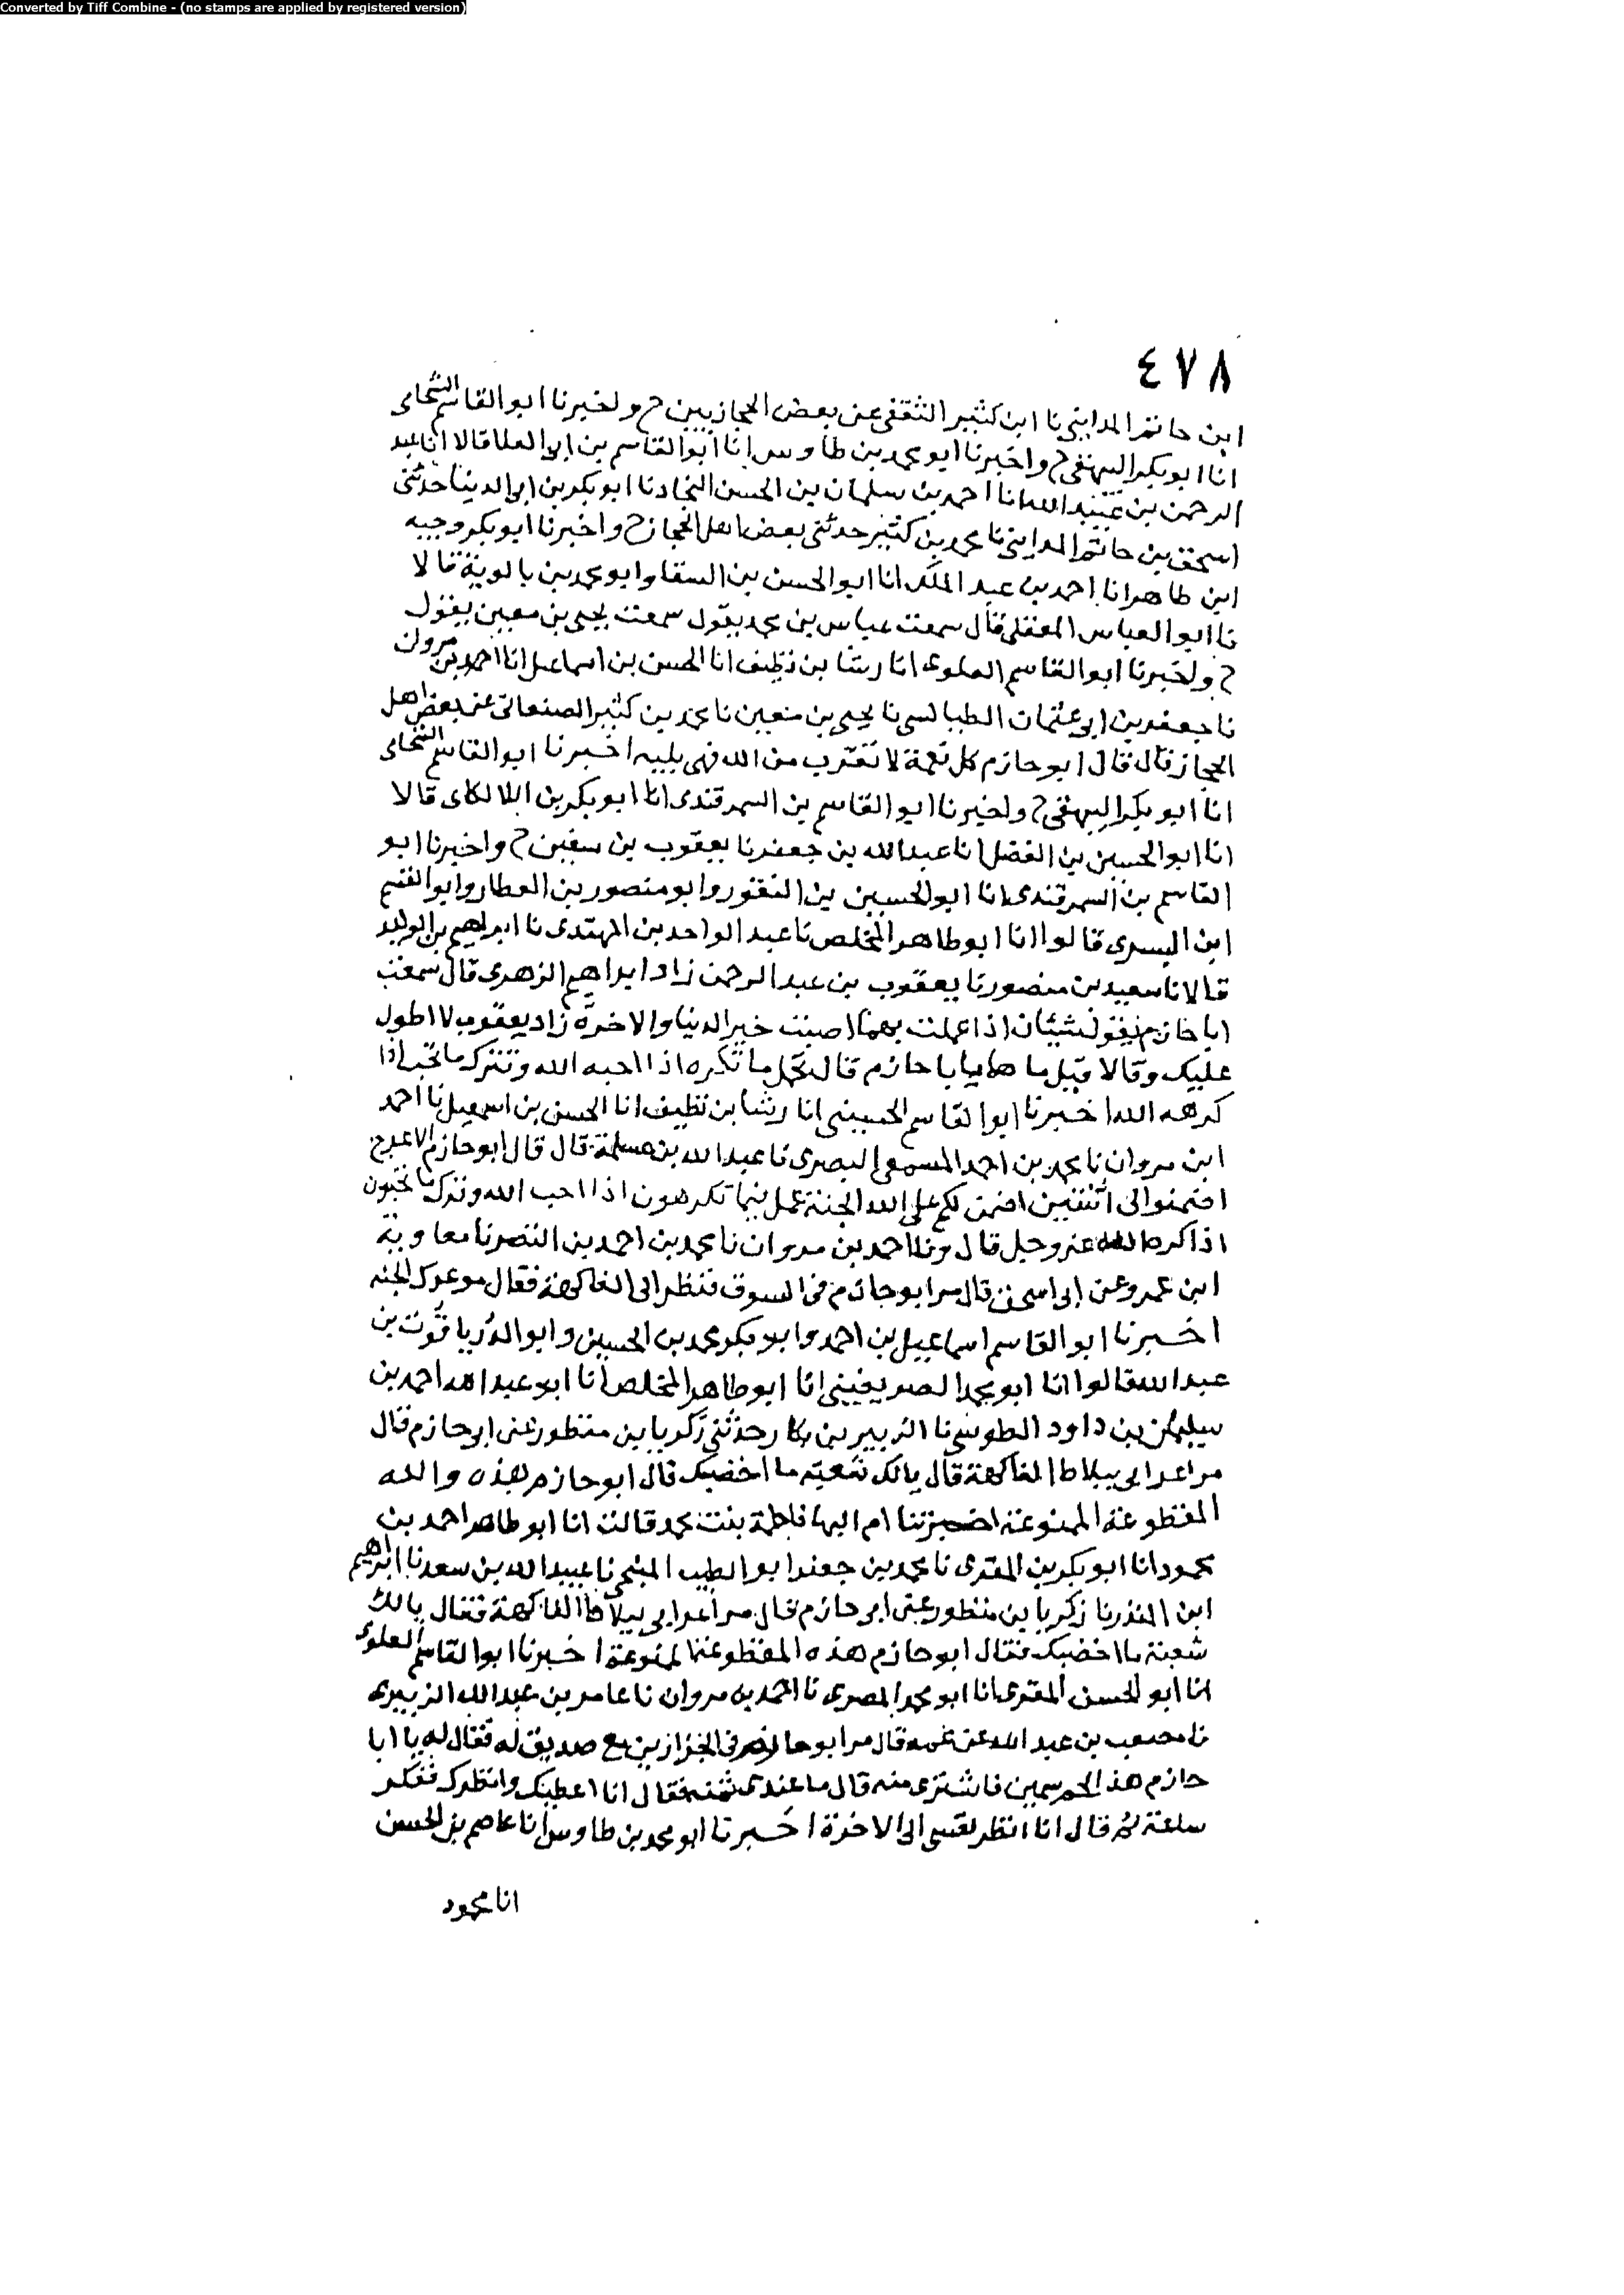 Converted by Tiff Combine - (no stamps are applied by registered version)
٤٧٨
ابن حاتم المدايني نا ابن كثير الثقفي عن بعض الحجازيين ح واخبرنا ابو القاسم الشحامي
انا ابو بكر البيهقي ح واخبرنا ابو محمد بن طاوس انا ابو القاسم بن ابي العلا قالا انا عبد
الرحمن بن عبيد الله انا احمد بن سلمان بن الحسن النجاد نا ابو بكر بن ابي الدنيا حدثني
اسحق بن حاتم المدايني نا محمد بن كثير حدثني بعض اهل الحجاز ح واخبرنا ابو بكر وجيه
ابن طاهر انا احمد بن عبد الملك انا ابو الحسن بن السقا وابو محمد بن بالوية قالا
نا ابو العباس المعقلي قال سمعت عباس بن محمد يقول سمعت يحيى بن معين يقول
ح واخبرنا ابو القاسم العلوي انا رشا بن نظيف انا الحسن بن اسماعيل انا احمد بن مروان
نا جعفر بن ابي عثمان الطيالسي نا يحيى بن معين نا محمد بن كثير الصنعاني عن بعض اهل
الحجاز قال قال ابو حازم كل نعمة لا تقرب من الله فهي بلية اخبرنا ابو القاسم الشحامي
انا ابو بكر البيهقي ح واخبرنا ابو القاسم بن السمرقندي انا ابو بكر بن اللالكاي قالا
انا ابو الحسين بن الفضل انا عبد الله بن جعفر نا يعقوب بن سفين ح واخبرنا ابو
القاسم بن السمرقندي انا ابو الحسين بن النقور وابو منصور بن العطار وابو القسم
ابن البسري قالوا انا ابو طاهر المخلص نا عبد الواحد بن المهتدى نا ابراهيم بن الوليد
قالا نا سعيد بن منصور نا يعقوب بن عبد الرحمن زاد ابراهيم الزهري قال سمعت
ابا حازم يقول شيئان اذا عملت بهما اصبت خير الدنيا والاخرة زاد يعقوب لا اطول
عليك وقالا قيل ما هما يا با حازم قال تحمل ما تكره اذا احبه الله وتترك ما تحب اذا
كرهه الله اخبرنا ابو القاسم الحسيني انا رشا بن نظيف انا الحسن بن اسمعيل نا احمد
ابن مروان نا محمد بن احمد المسمعي البصري نا عبد الله بن مسلمة قال قال ابو حازم الاعرج
اضمنوا لي اثنتين اضمن لكم على الله الجنة عمل بما تكرهون اذا احب الله وترك ما تحبون
اذا كره الله عز وجل قال ونا احمد بن مروان نا محمد بن احمد بن النضر نا معاوية
ابن عمرو عن ابي اسحق قال مر ابو حازم في السوق فنظر الى الفاكهة فقال موعدك الجنه
اخبرنا ابو القاسم اسماعيل بن احمد وابو بكر محمد بن الحسين وابو الدر ياقوت بن
عبد الله قالوا انا ابو محمد الصريفيني انا ابو طاهر المخلص انا ابو عبد الله احمد بن
سليمن بن داود الطوسي نا الزبير بن بكار حدثني زكريا بن منظور عن ابي حازم قال
مر اعرابي ببلاط الفاكهة قال يالك شعبة ما اخضبك قال ابو حازم هذه والله
المقطوعة الممنوعة اخبرتنا ام البها فاطمة بنت محمد قالت انا ابو طاهر احمد بن
محمود انا ابو بكر بن المقرى نا محمد بن جعفر ابو الطيب المنبجي نا عبيد الله بن سعد نا ابراهيم
ابن المنذر نا زكريا بن منظور عن ابي حازم قال مر اعرابي ببلاط الفاكهة فقال يالك
شعبة ما اخضبك فقال ابو حازم هذه المقطوعة الممنوعة اخبرنا ابو القاسم العلوي
انا ابو الحسن المقرى انا ابو محمد المصري نا احمد بن مروان نا عامر بن عبد الله الزبيري
نا مصعب بن عبد الله عن عمه قال مر ابو حازم في الجزارين مع صديق له فقال له يا ابا
حازم هذا لحم سمين فاشترى منه قال ما عندي ثمنه فقال انا اعطيك وانظرك ففكر
ساعة ثم قال انا انظر نفسي الى الاخرة اخبرنا ابو محمد بن طاوس انا عاصم بن الحسن
انا محمود